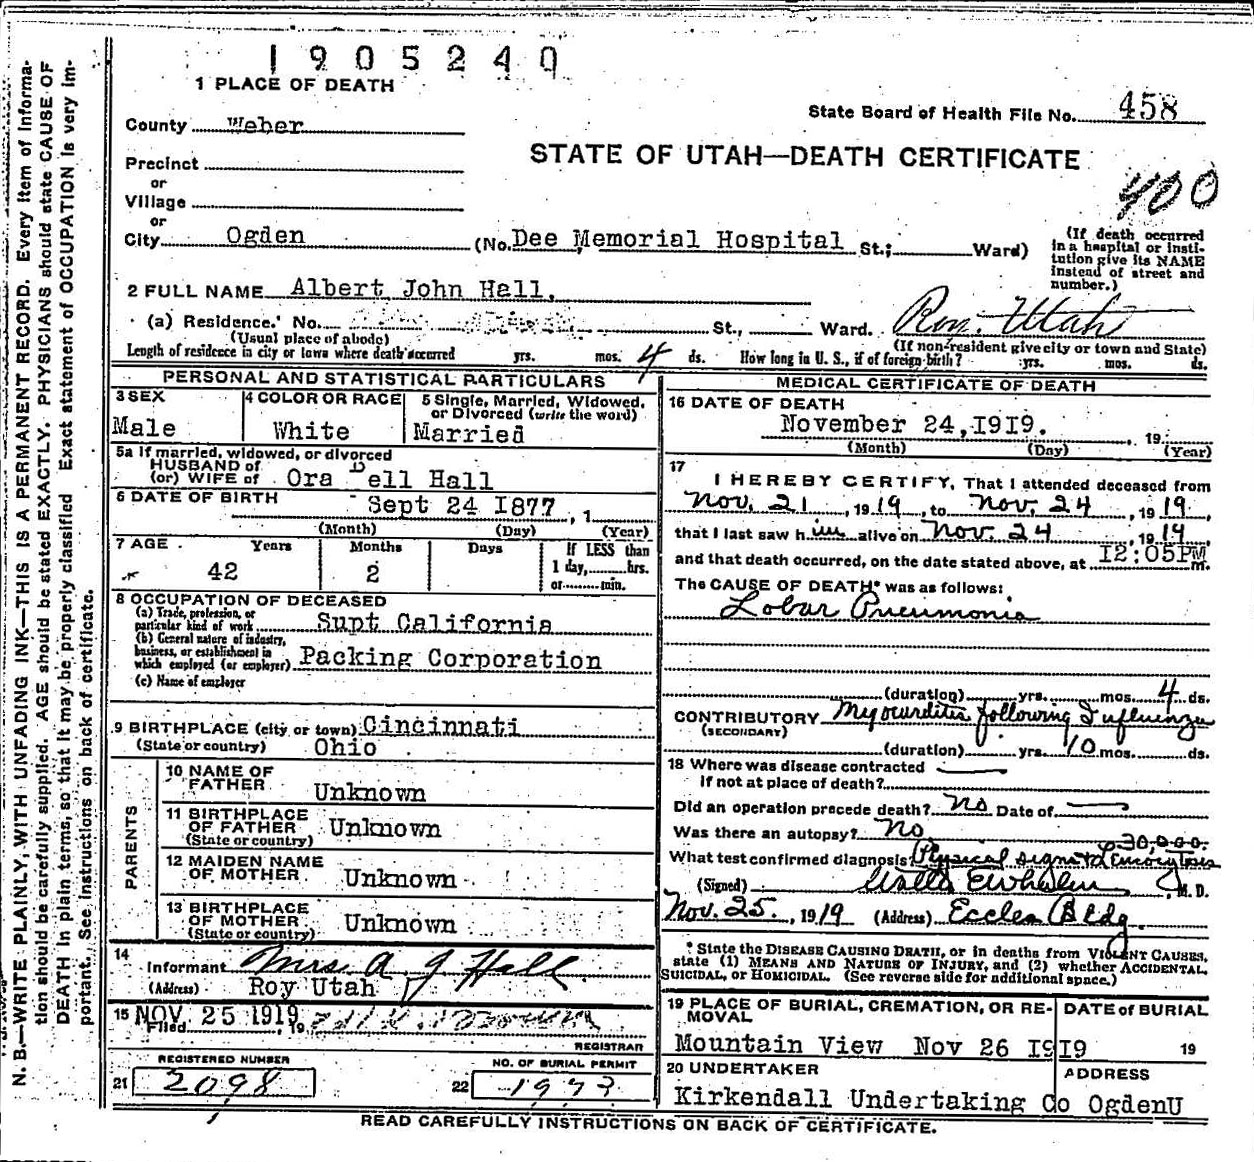 1905240
1 PLACE OF DEATH
State Board of Health File No. 458
County Weber
STATE OF UTAH—DEATH CERTIFICATE
400
Precinct
or
Village
or
City Ogden (No. Dee Memorial Hospital St.; Ward)
(If death occurred in a hospital or institution give its NAME instead of street and number.)
2 FULL NAME Albert John Hall.
(a) Residence. No. St., Ward. Roy. Utah
(Usual place of abode) (If non-resident give city or town and State)
Length of residence in city or town where death occurred yrs. mos. 4 ds. How long in U. S., if of foreign birth? yrs. mos. ds.
PERSONAL AND STATISTICAL PARTICULARS
3 SEX Male
4 COLOR OR RACE White
5 Single, Married, Widowed, or Divorced (write the word) Married
5a If married, widowed, or divorced
HUSBAND of
(or) WIFE of Ora Dell Hall
6 DATE OF BIRTH Sept 24 I877, 1
(Month) (Day) (Year)
7 AGE Years 42 Months 2 Days If LESS than 1 day, hrs. or min.
8 OCCUPATION OF DECEASED
(a) Trade, profession, or particular kind of work Supt California
(b) General nature of industry, business, or establishment in which employed (or employer) Packing Corporation
(c) Name of employer
9 BIRTHPLACE (city or town) Cincinnati
(State or country) Ohio
PARENTS
10 NAME OF FATHER Unknown
11 BIRTHPLACE OF FATHER (State or country) Unknown
12 MAIDEN NAME OF MOTHER Unknown
13 BIRTHPLACE OF MOTHER (State or country) Unknown
14 Informant Mrs. A J Hall
(Address) Roy Utah
15 NOV 25 1919
Filed , 19
REGISTRAR
REGISTERED NUMBER
21 2098
NO. OF BURIAL PERMIT
22 1973
MEDICAL CERTIFICATE OF DEATH
16 DATE OF DEATH
November 24, I9I9. , 19
(Month) (Day) (Year)
17
I HEREBY CERTIFY, That I attended deceased from
Nov. 21, 1919, to Nov. 24, 1919,
that I last saw him alive on Nov. 24, 1919
and that death occurred, on the date stated above, at I2:05PM m.
The CAUSE OF DEATH* was as follows:
Lobar Pneumonia
(duration) yrs. mos. 4 ds.
CONTRIBUTORY Myocarditis following Influenza
(SECONDARY)
(duration) yrs. 10 mos. ds.
18 Where was disease contracted
If not at place of death?
Did an operation precede death? No Date of
Was there an autopsy? No
30,000.
What test confirmed diagnosis? Physical signs & Leucocytosis
(Signed) M. D.
Nov. 25, 1919 (Address) Eccles Bldg
* State the DISEASE CAUSING DEATH, or in deaths from VIOLENT CAUSES, state (1) MEANS AND NATURE OF INJURY, and (2) whether ACCIDENTAL, SUICIDAL, OR HOMICIDAL. (See reverse side for additional space.)
19 PLACE OF BURIAL, CREMATION, OR REMOVAL DATE of BURIAL
Mountain View Nov 26 I9I9 19
20 UNDERTAKER ADDRESS
Kirkendall Undertaking Co OgdenU
READ CAREFULLY INSTRUCTIONS ON BACK OF CERTIFICATE.
N. B.—WRITE PLAINLY, WITH UNFADING INK—THIS IS A PERMANENT RECORD. Every item of information should be carefully supplied. AGE should be stated EXACTLY. PHYSICIANS should state CAUSE OF DEATH in plain terms, so that it may be properly classified. Exact statement of OCCUPATION is very important. See instructions on back of certificate.